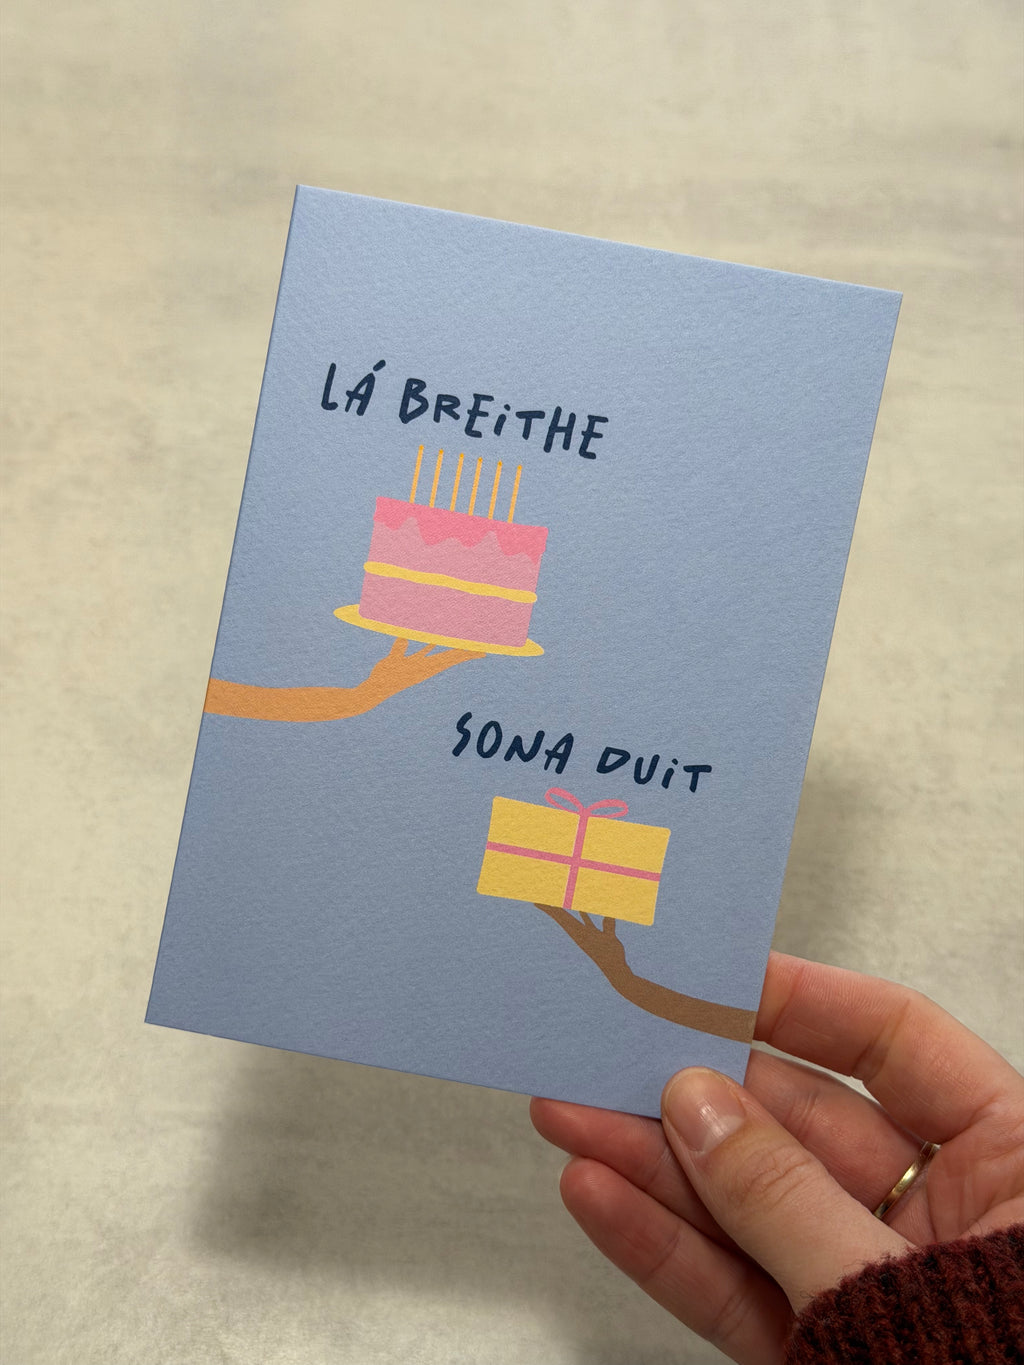 LÁ BREiTHE
SONA DUiT